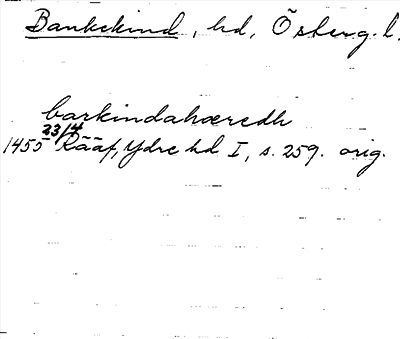 Bankekind, hd, Österg. l.
barkindahæredh
1455 23/4 Rääf, Ydre hd I, s. 259. orig.